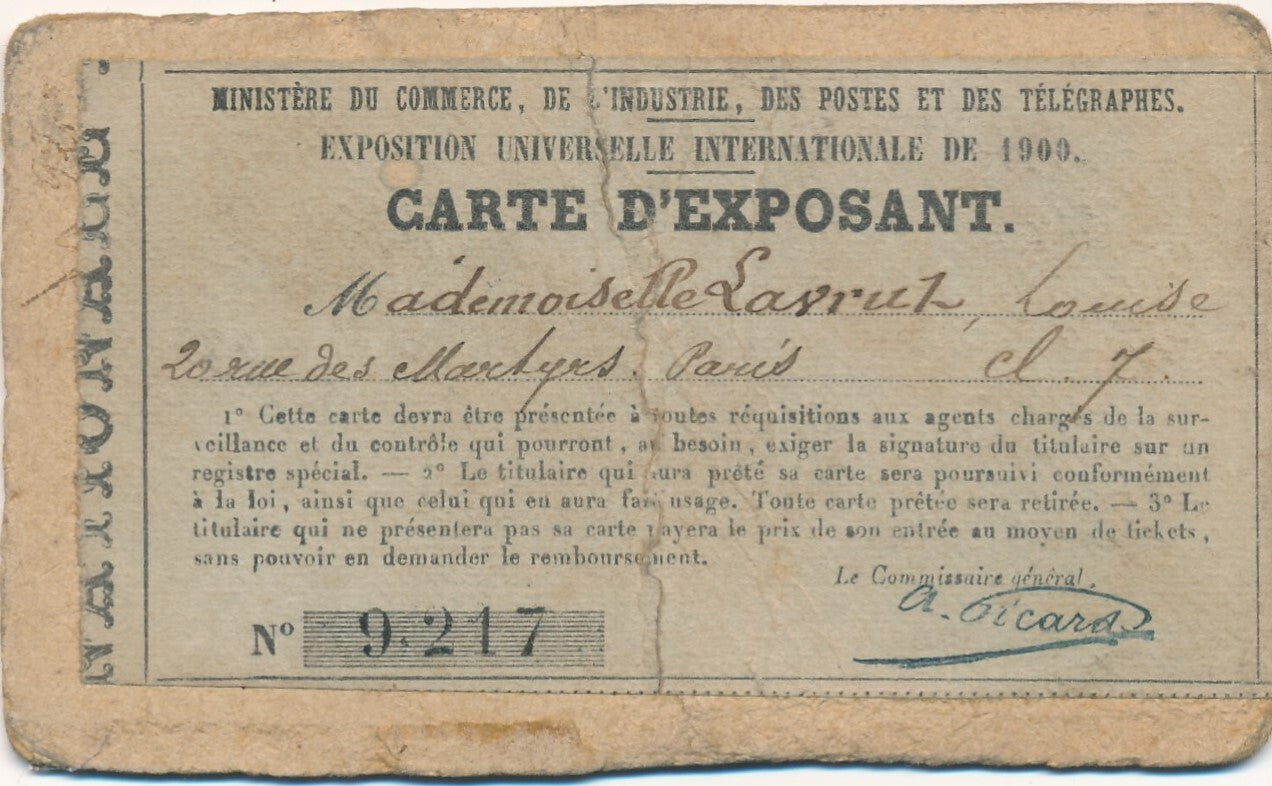 MINISTÈRE DU COMMERCE, DE L'INDUSTRIE, DES POSTES ET DES TÉLÉGRAPHES.
EXPOSITION UNIVERSELLE INTERNATIONALE DE 1900.
CARTE D'EXPOSANT.
Mademoiselle Lavrut, Louise
20 rue des Martyrs. Paris cl. 7.
1° Cette carte devra être présentée à toutes réquisitions aux agents chargés de la sur-
veillance et du contrôle qui pourront, au besoin, exiger la signature du titulaire sur un
registre spécial. — 2° Le titulaire qui aura prêté sa carte sera poursuivi conformément
à la loi, ainsi que celui qui en aura fait usage. Toute carte prêtée sera retirée. — 3° Le
titulaire qui ne présentera pas sa carte payera le prix de son entrée au moyen de tickets,
sans pouvoir en demander le remboursement.
Le Commissaire général.
A. Picard
N° 9.217